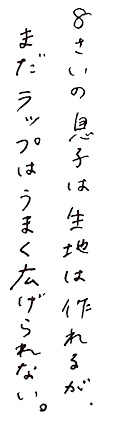 8さいの息子は生地は作れるが、
まだラップはうまく広げられない。